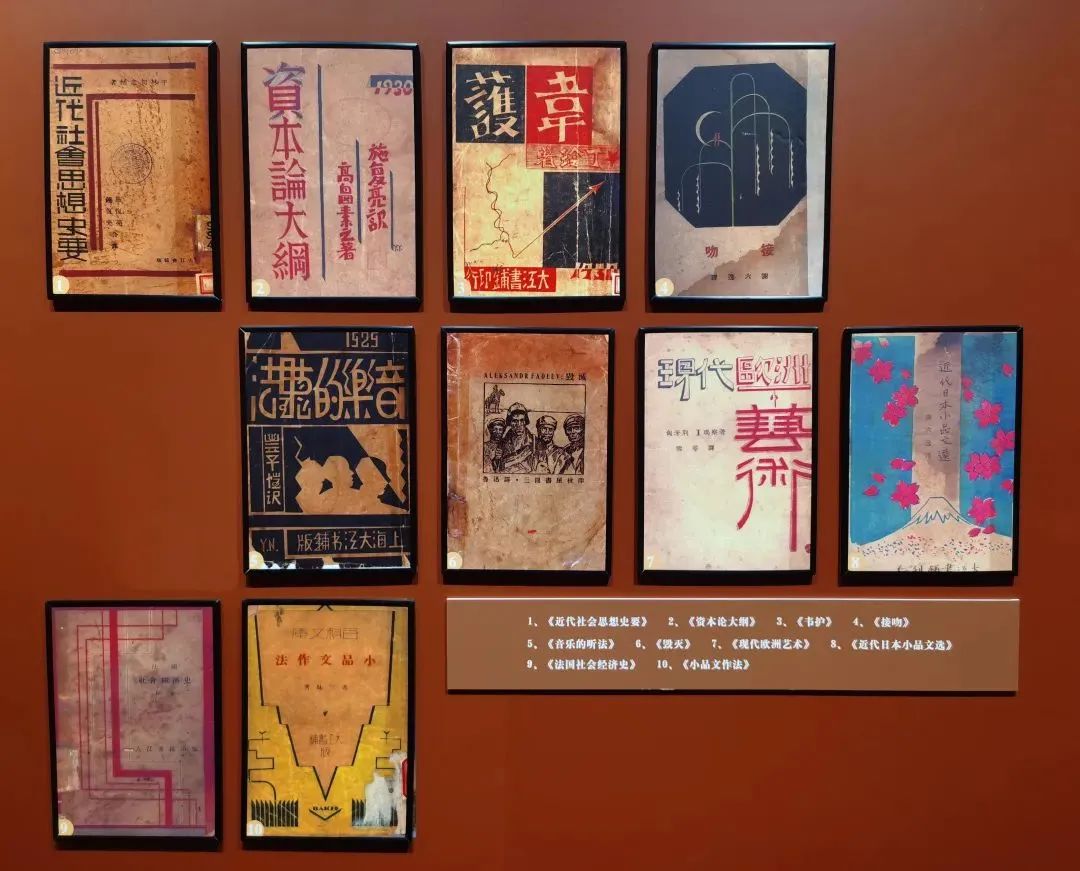 近代社會思想史要
1
資本論大綱
1930
施復亮譯
高畠素之著
2
韋護
丁玲著
大江書鋪印行
1930
3
接吻
謝六逸譯
4
1929
音樂的聽法
豐子愷訳
上海大江书鋪版
Y.N.
ALEKSANDR FADEEV:毀滅
魯迅譯·三閒書屋校印
6
現代歐洲
藝術
雪峯譯
7
近代日本小品文選
謝六逸譯
8
9
小品文作法
大江書鋪版
10
1、《近代社会思想史要》 2、《资本论大纲》 3、《韦护》 4、《接吻》
5、《音乐的听法》 6、《毁灭》 7、《现代欧洲艺术》 8、《近代日本小品文选》
9、《法国社会经济史》 10、《小品文作法》